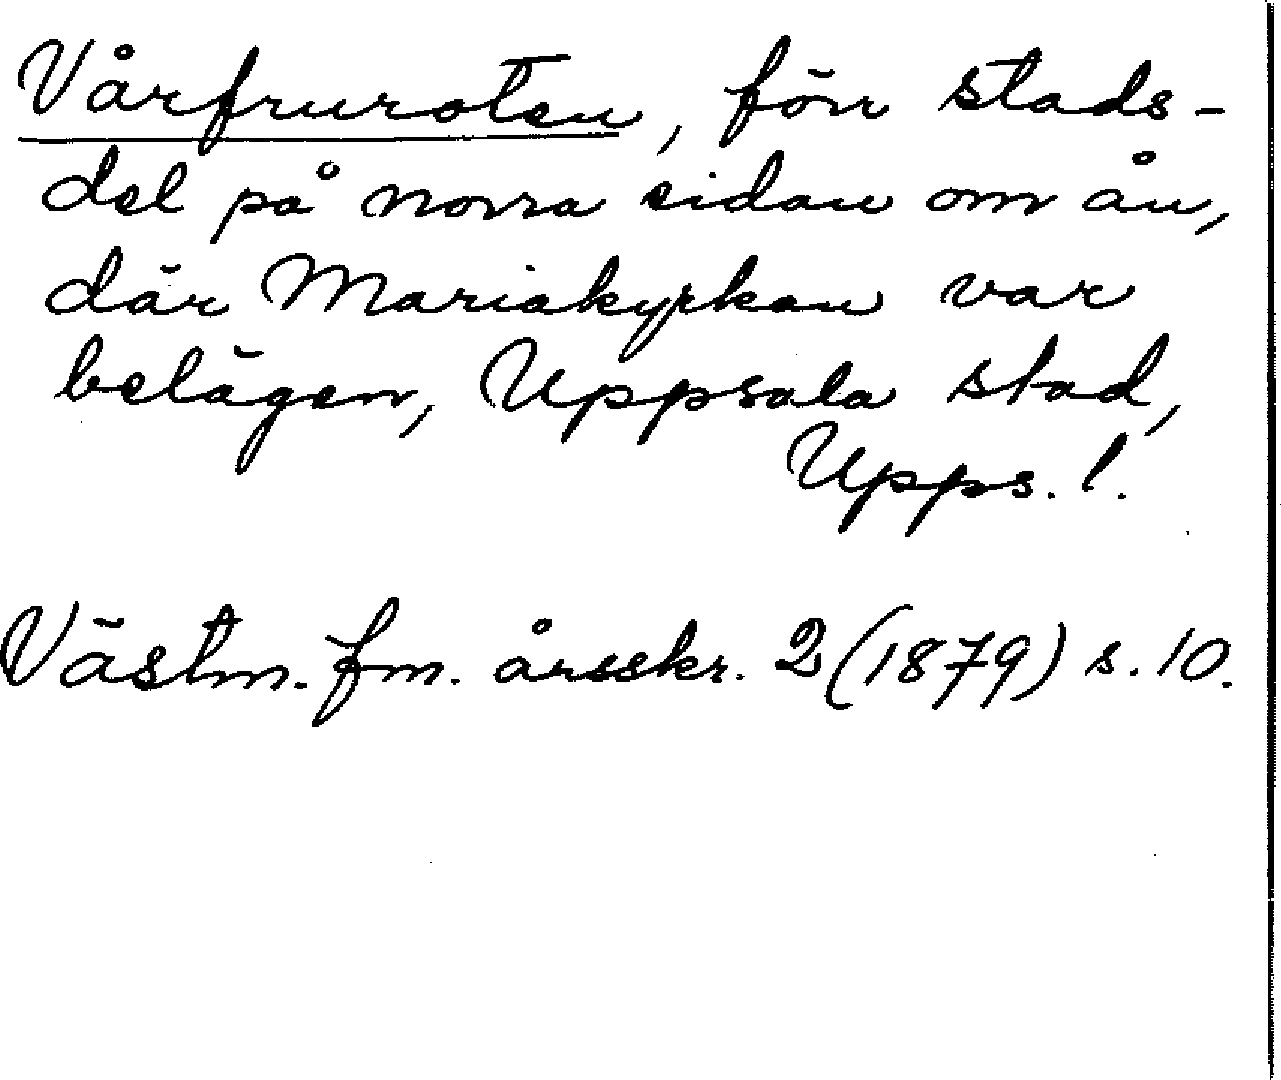 Vårfruroten, förr stads-
del på norra sidan om ån,
där Mariakyrkan var
belägen, Uppsala stad,
Upps. l.
Västm. fm. årsskr. 2 (1879) s. 10.